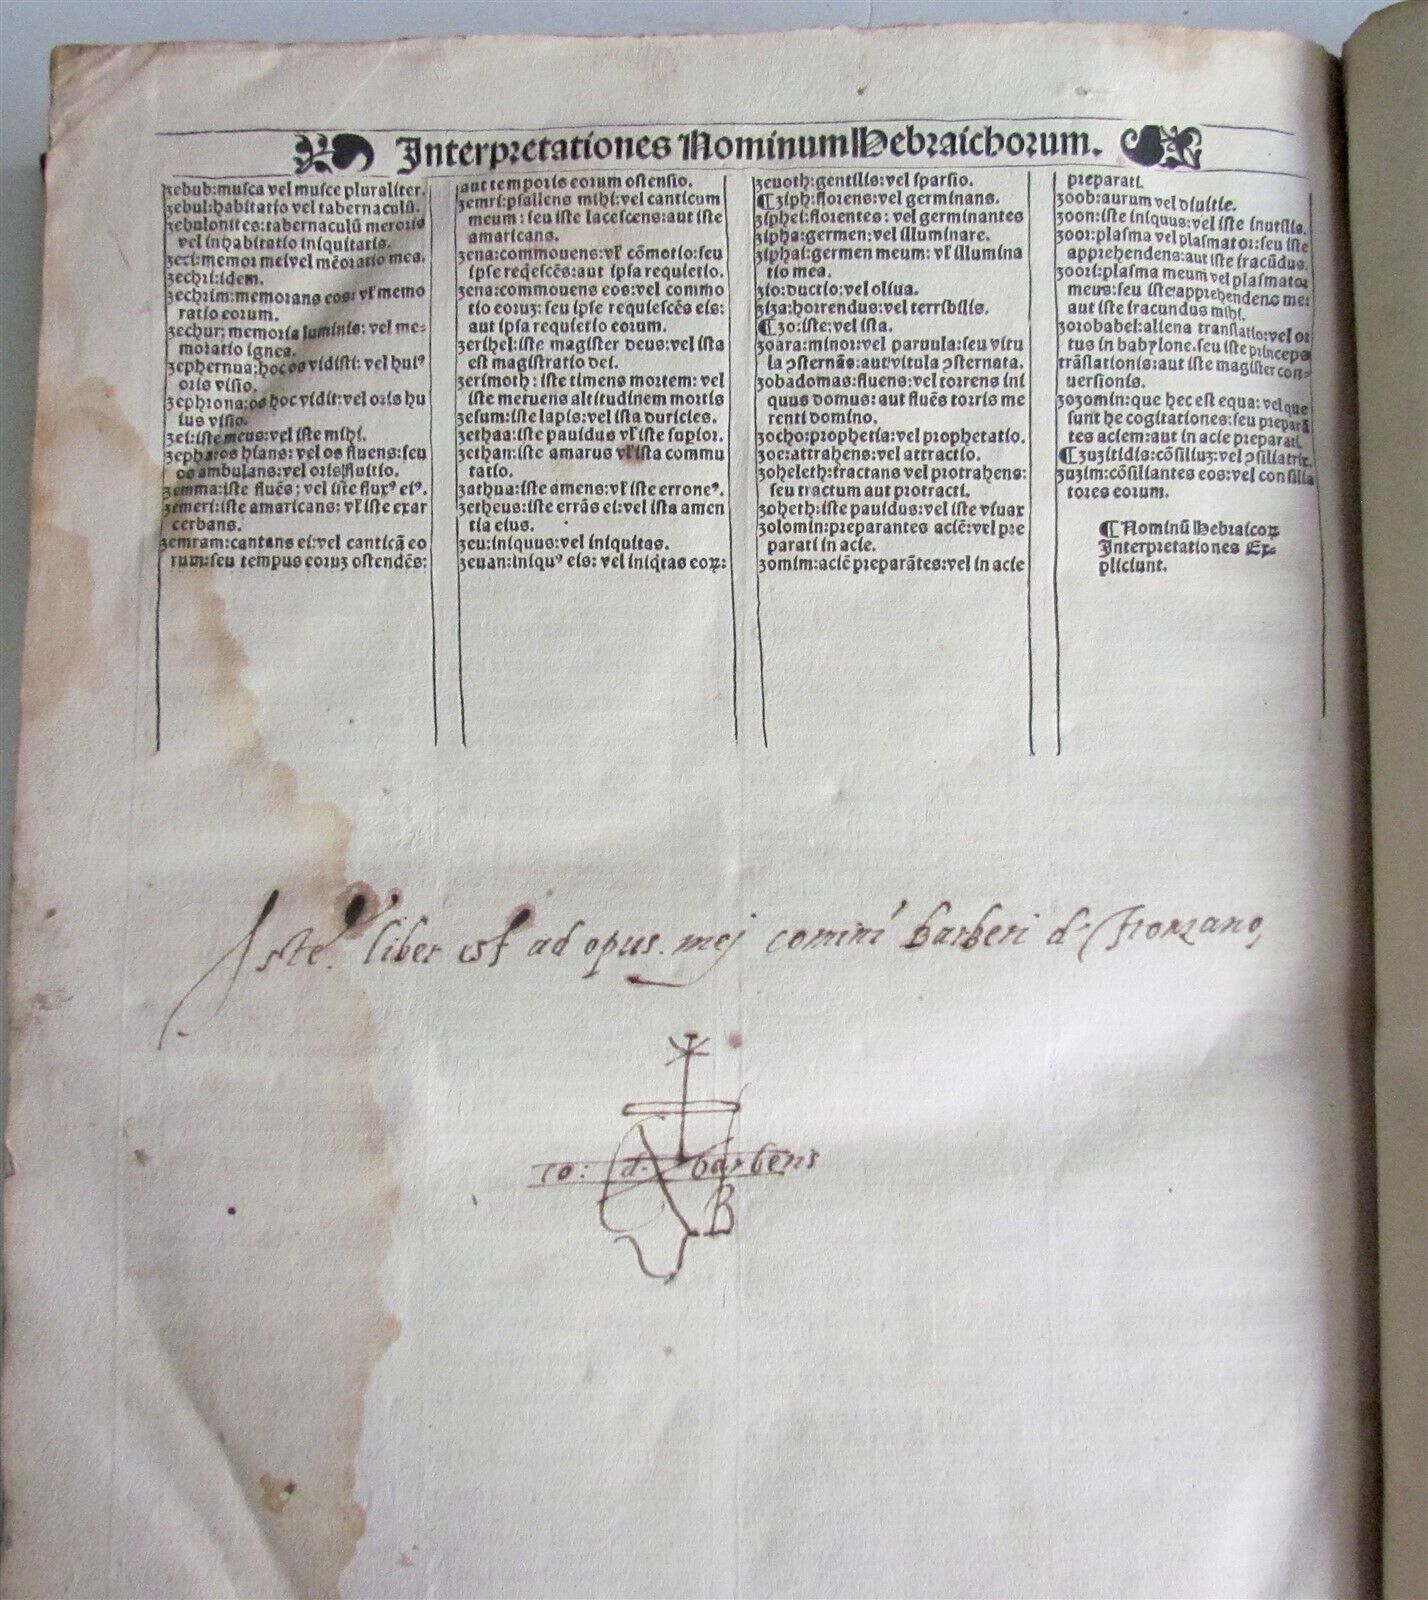 Interpretationes Nominum Hebraichorum.
zebub:musca vel musce pluraliter.
zebul:habitatio vel tabernaculū.
zebulonites:tabernaculū meroris
vel inhabitatio iniquitatis.
zeci:memor mei vel mēoratio mea.
zechri:idem.
zechrim:memorans eos: vl̕ memo
ratio eorum.
zechur: memoria luminis: vel me-
moratio ignea.
zephernua:hoc os vidisti: vel huiꝰ
oris visio.
zephrona:os hoc vidit:vel oris hu
ius visio.
zei:iste meus:vel iste mihi.
zepha:os hians: vel os fluens:seu
os ambulans:vel oris fluitio.
zemma:iste fluēs; vel iste fluxꝰ eiꝰ.
zemeri:iste amaricans: vl̕ iste exar
cerbans.
zemram:cantans ei:vel canticā eo
rum:seu tempus eoruz ostendēs:
aut temporis eorum ostensio.
zemri:psallens mihi:vel canticum
meum: seu iste lacescens:aut iste
amaricans.
zena:commouens: vl̕ cōmotio:seu
ipse reqescēs:aut ipsa requietio.
zena:commouens eos:vel commo
tio eoruz: seu ipse requiescēs eis:
aut ipsa requietio eorum.
zerihel:iste magister deus:vel ista
est magistratio dei.
zerimoth: iste timens mortem: vel
iste metuens altitudinem mortis
zesum:iste lapis:vel ista duricies.
zethaa:iste pauidus vl̕ iste supior.
zethan:iste amarus vl̕ ista commu
tatio.
zathua:iste amens:vl̕ iste erroneꝰ.
zetheus:iste errās ei:vel ista amen
tia eius.
zeu:iniquus:vel iniquitas.
zeuan:iniquꝰ eis: vel iniqtas eoꝝ:
zeuoth:gentilis:vel sparsio.
¶ziph:florens:vel germinans.
ziphei:florentes: vel germinantes
zipha:germen:vel illuminare.
ziphai:germen meum: vl̕ illumina
tio mea.
zio:ductio:vel oliua.
ziza:horrendus:vel terribilis.
¶zo:iste:vel ista.
zoara:minor:vel paruula:seu vitu
la ↄsternās:aut vitula ↄsternata.
zobadomas:fluens:vel torrens ini
quus domus: aut fluēs torris me
renti domino.
zocho:prophetia:vel prophetatio.
zoe:attrahens:vel attractio.
zoheleth:tractans vel protrahens:
seu tractum aut protracti.
zoheth:iste pauidus:vel iste viuax
zolomin:preparantes aciē:vel pre
parati in acie.
zomim:aciē preparātes:vel in acie
preparati.
zoob:aurum vel diuitie.
zoon:iste iniquus:vel iste inutilis.
zoor:plasma vel plasmator:seu iste
apprehendens:aut iste iracūdus.
zoori:plasma meum vel plasmator
meus:seu iste apprehendens me:
aut iste iracundus mihi.
zorobabel:aliena translatio:vel or
tus in babylone.seu iste princeps
trāslationis:aut iste magister con-
uersionis.
zozomin:que hec est equa: vel que
sunt he cogitationes:seu preparā
tes aciem:aut in acie preparati.
¶zuzitidis:cōsiliuz:vel ↄsiliatrix.
zuzim:cōsiliantes eos:vel consilia
tores eorum.
¶Nominū Hebraicoꝝ
Interpretationes Ex-
pliciunt.
Iste. liber est ad opus. mej comini barberi d. Tronzano,
co: d. barberis
B